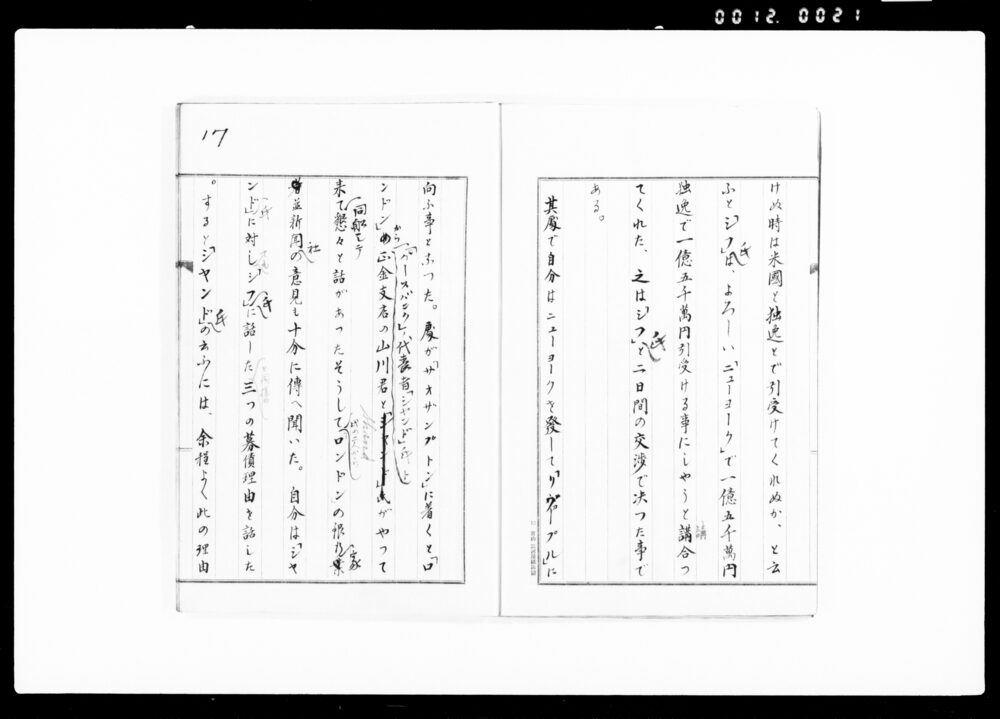 0012.0021
けぬ時は米國と独逸とで引受けてくれぬか、と云
ふとシフ氏は、よろしい「ニューヨーク」で一億五千萬円
独逸で一億五千萬円引受ける事にしやうと講合つ
てくれた、之はシフ氏と二日間の交渉で决つた事で
ある。
其處で自分はニューヨークを發して「リヴァープル」に
17
向ふ事となつた。處が「サオザンプトン」に着くと「ロ
ンドン」から正金支店の山川君と「パースバンク」代表者「シヤンド」氏とがやつて
来て懇々と話があつたそうして「ロンドン」の銀行家
並新聞社の意見も十分に傳へ聞いた。自分は「シヤ
ンド」氏に対し「シフ」氏に話した三つの募債理由を話した
。すると「シヤンド」氏の云ふには、余程よく此の理由